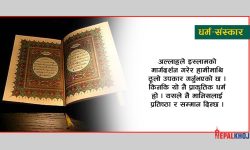 धर्म-संस्कार
अल्लाहले इस्लामको
मार्गदर्शन गरेर हामीमाथि
ठूलो उपकार गर्नुभएको छ ।
किनकि यो नै प्राकृतिक धर्म
हो । यसले नै मानिसलाई
प्रतिष्ठा र सम्मान दिन्छ ।
NEPALKHOJ